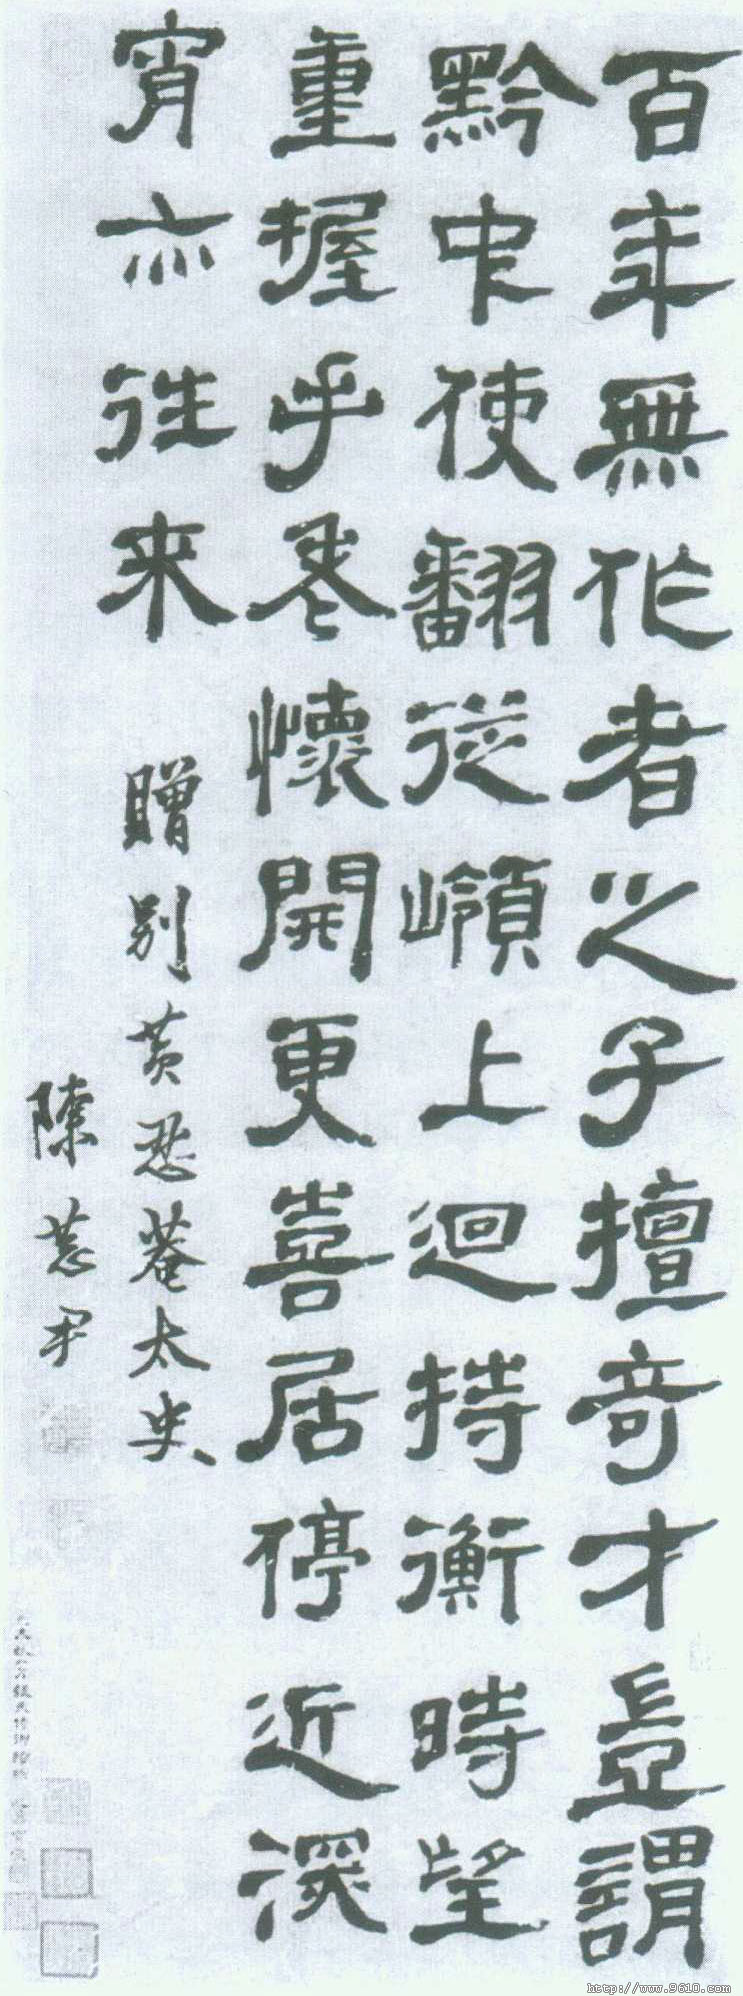 百年無作者之子擅奇才豈謂
黔中使翻從嶺上迴持衡時望
重握手老懷開更喜居停近深
宵亦往来 贈別黃忍菴太史
陳恭尹
http://www.9610.com